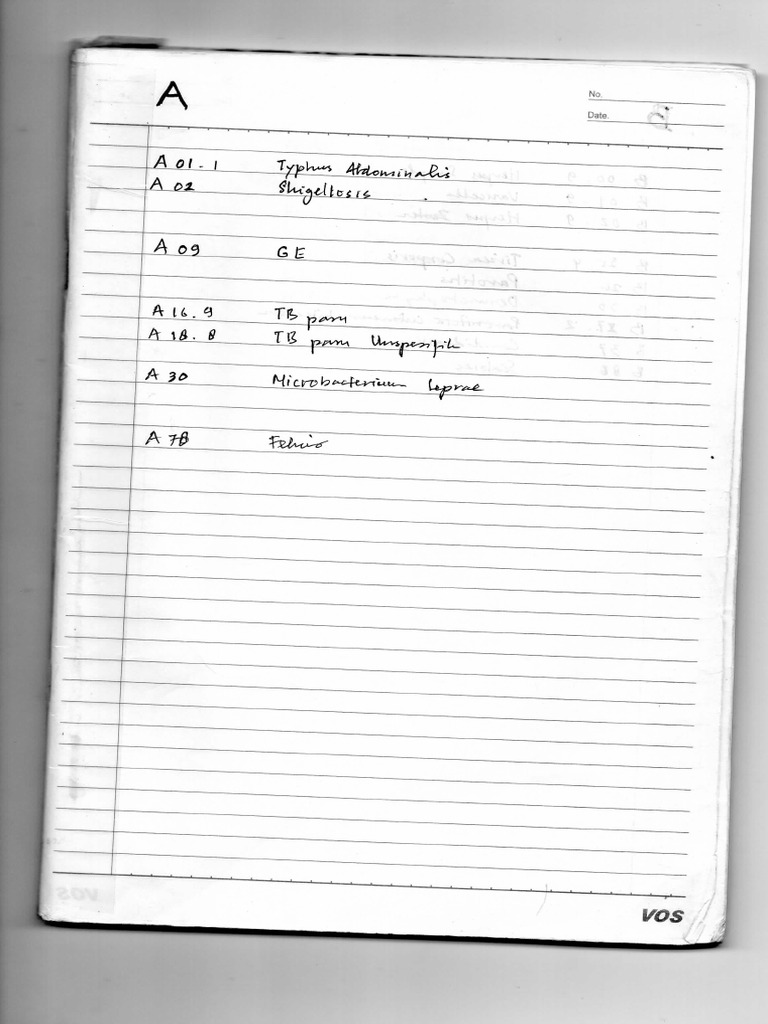 A
No.
Date.
A 01.1 Typhus Abdominalis
A 02 Shigellosis
A 09 GE
A 16.9 TB paru
A 18.8 TB paru Unspesifik
A 30 Microbacterium leprae
A 78 Febris
VOS